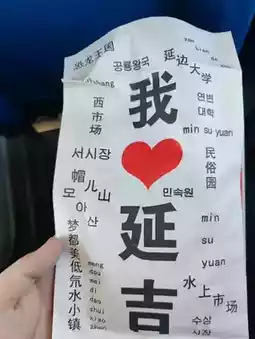 恐龙王国
공룡왕국
延边大学
yan
bian
da
연변
대학
西市场
서시장
min su yuan
帽儿山
모
아
산
民俗园
민속원
min
su
yuan
我
❤
延吉
梦都美低氘水小镇
meng
dou
mei
di
dao
shui
xiao
zhen
水上市场
수상
시장